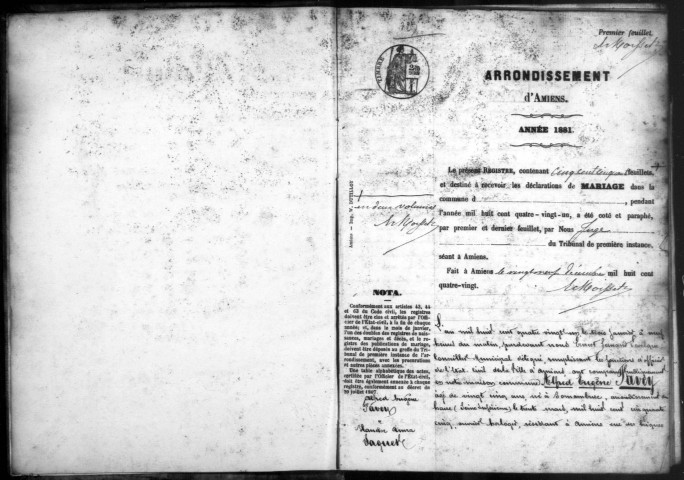 Premier feuillet.
TIMBRE
ARRONDISSEMENT
d'AMIENS.
ANNÉE 1881.
Le présent REGISTRE, contenant feuillets,
et destiné à recevoir les déclarations de MARIAGE dans la
commune d , pendant
l'année mil huit cent quatre-vingt-un, a été coté et paraphé,
par premier et dernier feuillet, par Nous Juge
du Tribunal de première instance,
séant à Amiens.
Fait à Amiens le vingt neuf Décembre mil huit cent
quatre-vingt.
en deux volumes
NOTA.
Conformément aux articles 43, 44
et 63 du Code civil, les registres
doivent être clos et arrêtés par l'Offi-
cier de l'État-civil, à la fin de chaque
année; et, dans le mois de janvier,
l'un des doubles des registres de nais-
sances, mariages et décès, et le re-
gistre des publications de mariage,
doivent être déposés au greffe du Tri-
bunal de première instance de l'ar-
rondissement, avec les procurations
et autres pièces annexées.
Une table alphabétique des actes,
certifiée par l'Officier de l'État-civil,
doit être également annexée à chaque
registre, conformément au décret du
20 juillet 1807.
Alfred Eugène
Favry
&
L'an mil huit cent quatre vingt un le trois janvier à neuf
heures du matin, pardevant nous
Conseiller Municipal délégué, remplissant les fonctions d'officier
de l'état civil de la ville d'Amiens ont comparu publiquement
en notre maison commune Alfred Eugène Favry
âgé de vingt cinq ans, né à
(Seine Inférieure) le trente mars mil huit cent cinquante
cinq, ouvrier horloger, résidant à Amiens rue des